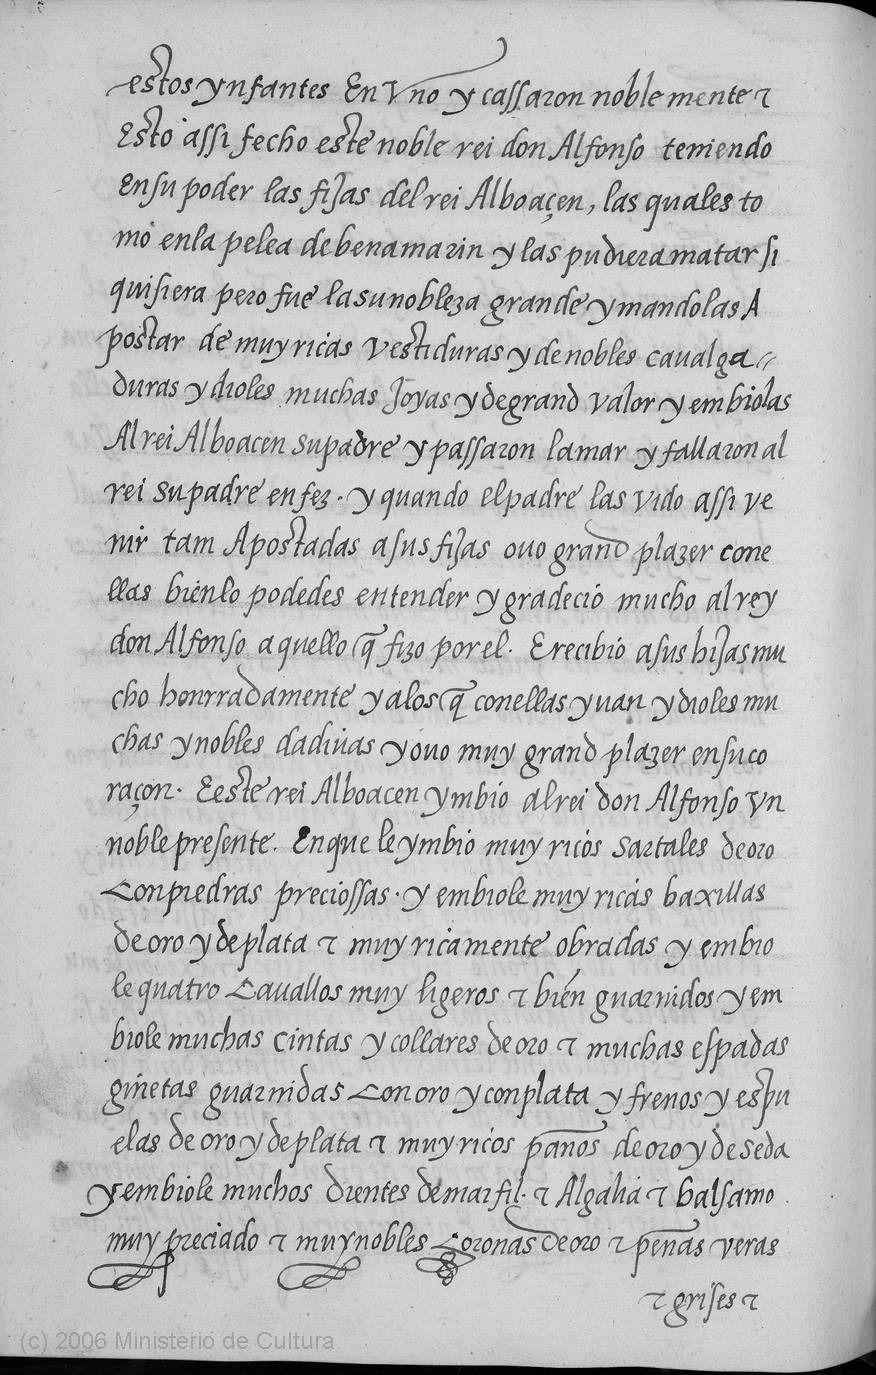 estos ynfantes En Vno y cassaron noble mente τ
Esto assi fecho este noble rei don Alfonso teniendo
En su poder las fijas del rei Alboaçen, las quales to
mó en la pelea de benamarin y las pudiera matar si
quisiera pero fue la su nobleza grande y mandolas A
postar de muy ricas vestiduras y de nobles caualga〃
duras y dioles muchas Joyas y de grand valor y embiolas
Al rei Alboacen su padre y passaron la mar y fallaron al
rei su padre en fez. y quando el padre las vido assi ve
nir tam Apostadas a sus fijas ouo grand plazer con e
llas bien lo podedes entender y gradeció mucho al rey
don Alfonso aquello q̃ fizo por el. E recibió a sus hijas mu
cho honrradamente y a los q̃ con ellas yuan y dioles mu
chas y nobles dadiuas y ouo muy grand plazer en su co
raçon. E este rei Alboacen ymbió al rei don Alfonso Vn
noble presente. En que le ymbió muy ricos sartales de oro
Con piedras preciossas. y embiole muy ricas baxillas
de oro y de plata τ muy ricamente obradas y embio
le quatro Cauallos muy ligeros τ bien guarnidos y em
biole muchas cintas y collares de oro τ muchas espadas
ginetas guarnidas Con oro y con plata y frenos y espu
elas de oro y de plata τ muy ricos paños de oro y de seda
y embiole muchos dientes de marfil. τ Algalia τ balsamo
muy preciado τ muy nobles Coronas de oro τ peñas veras
τ grises τ
(c) 2006 Ministerio de Cultura